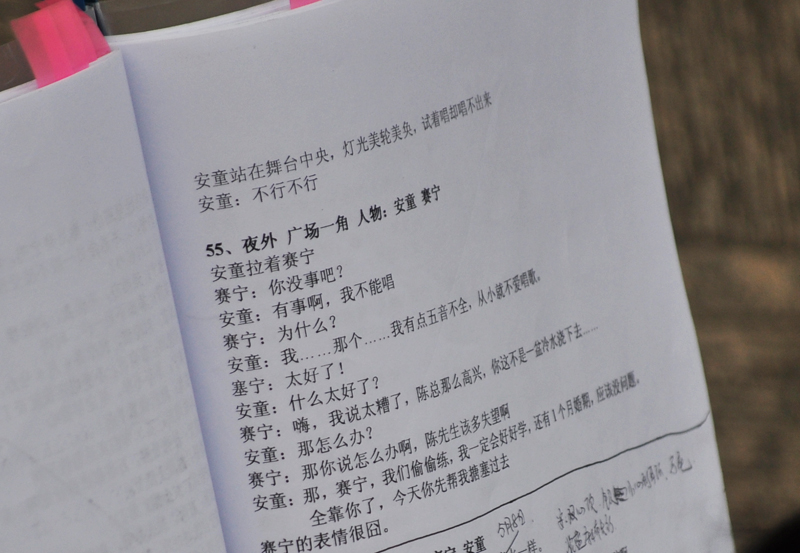 安童站在舞台中央，灯光美轮美奂，试着唱却唱不出来
安童：不行不行
55、夜外 广场一角 人物：安童 赛宁
安童拉着赛宁
赛宁：你没事吧？
安童：有事啊，我不能唱
赛宁：为什么？
安童：我……那个……我有点五音不全，从小就不爱唱歌。
塞宁：太好了！
安童：什么太好了？
赛宁：嗨，我说太糟了，陈总那么高兴，你这不是一盆冷水浇下去……
安童：那怎么办？
赛宁：那你说怎么办啊，陈先生该多失望啊
安童：那，赛宁，我们偷偷练，我一定会好好学，还有1个月婚期，应该没问题。
全靠你了，今天你先帮我搪塞过去
赛宁的表情很囧。
安童
5月8日
一样。